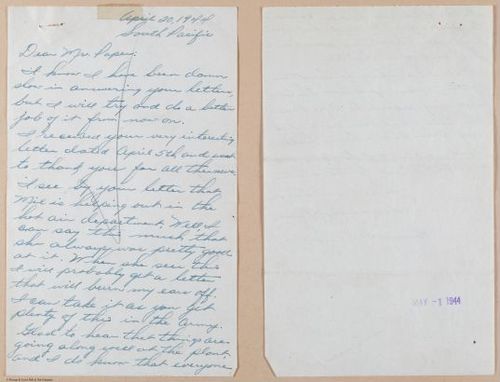 April 20, 1944
South Pacific
Dear Mrs. Paper:
I know I have been damn
slow in answering your letters,
but I will try and do a better
job of it from now on.
I received your very interesting
letter dated April 5th and want
to thank you for all the news.
I see by your letter that
is helping out in the
hot air department. Well I
can say this much, that
she always was pretty good
at it. When she sees this
I will probably get a letter
that will burn my ears off.
I can take it as you get
plenty of this in the Army.
Glad to hear that things are
going along well at the plant
and I do know that everyone
MAY -1 1944